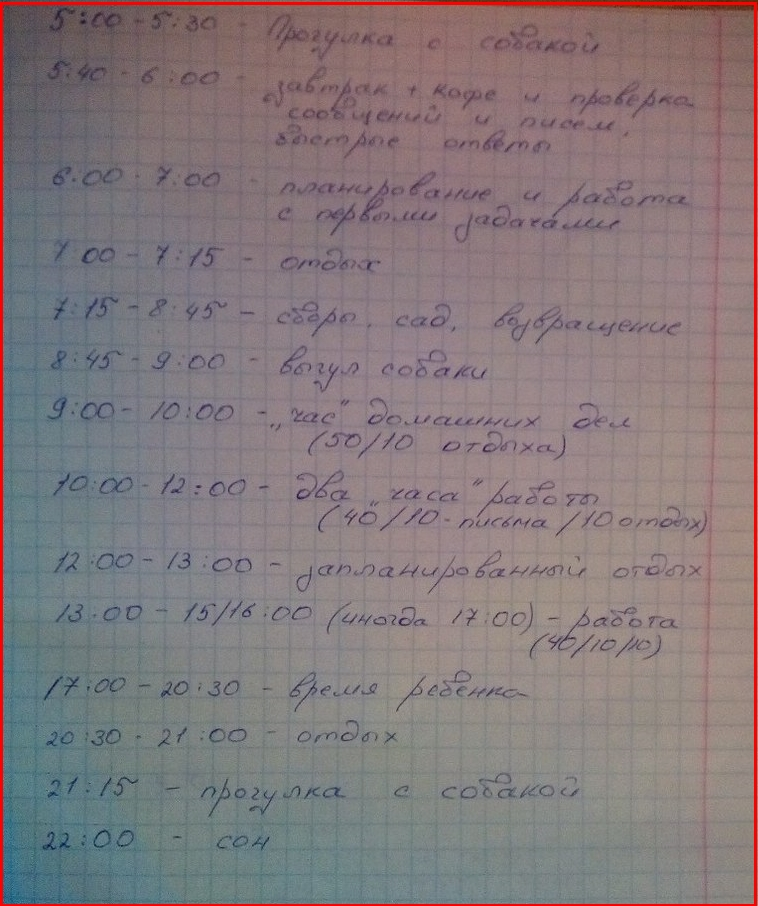 5:00 - 5:30 - Прогулка с собакой
5:40 - 6:00 - завтрак + кофе и проверка
сообщений и писем,
быстрые ответы
6:00 - 7:00 - планирование и работа
с первыми задачами
7:00 - 7:15 - отдых
7:15 - 8:45 - сборы, сад, возвращение
8:45 - 9:00 - выгул собаки
9:00 - 10:00 - „час" домашних дел
(50/10 отдыха)
10:00 - 12:00 - два „часа" работы
(40/10 - письма/10 отдых)
12:00 - 13:00 - запланированный отдых
13:00 - 15/16:00 (иногда 17:00) - работа
(40/10/10)
17:00 - 20:30 - время ребенка
20:30 - 21:00 - отдых
21:15 - прогулка с собакой
22:00 - сон